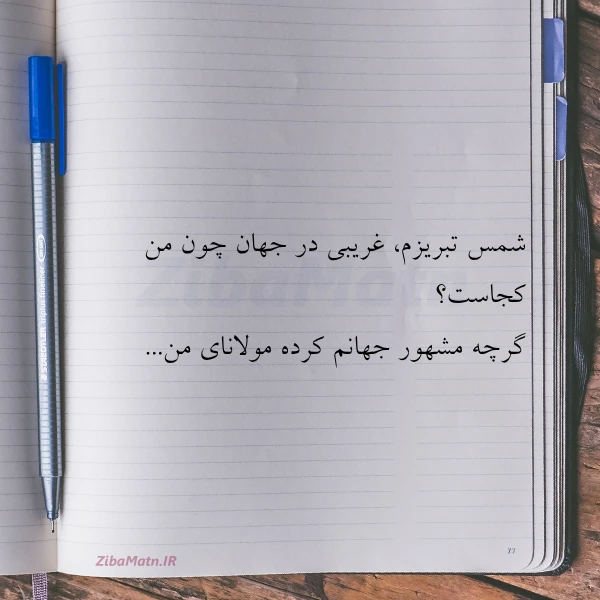 شمس تبریزم، غریبی در جهان چون من
کجاست؟
گرچه مشهور جهانم کرده مولانای من...
ZibaMatn.IR
77